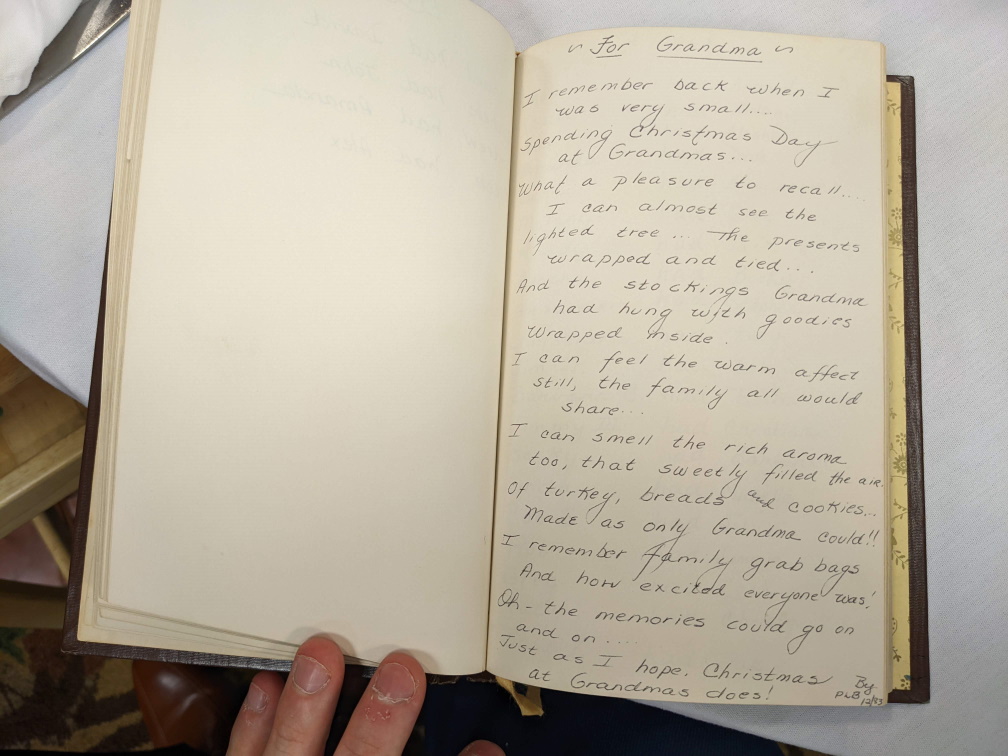 ~ For Grandma ~
I remember back when I
was very small....
Spending Christmas Day
at Grandmas...
What a pleasure to recall....
I can almost see the
lighted tree... The presents
wrapped and tied....
And the stockings Grandma
had hung with goodies
Wrapped inside.
I can feel the warm affect
still, the family all would
share...
I can smell the rich aroma
too, that sweetly filled the air.
Of turkey, breads and cookies...
Made as only Grandma could!!
I remember family grab bags
And how excited everyone was!
Oh - the memories could go on
and on ....
Just as I hope. Christmas
at Grandmas does!
By
PWB